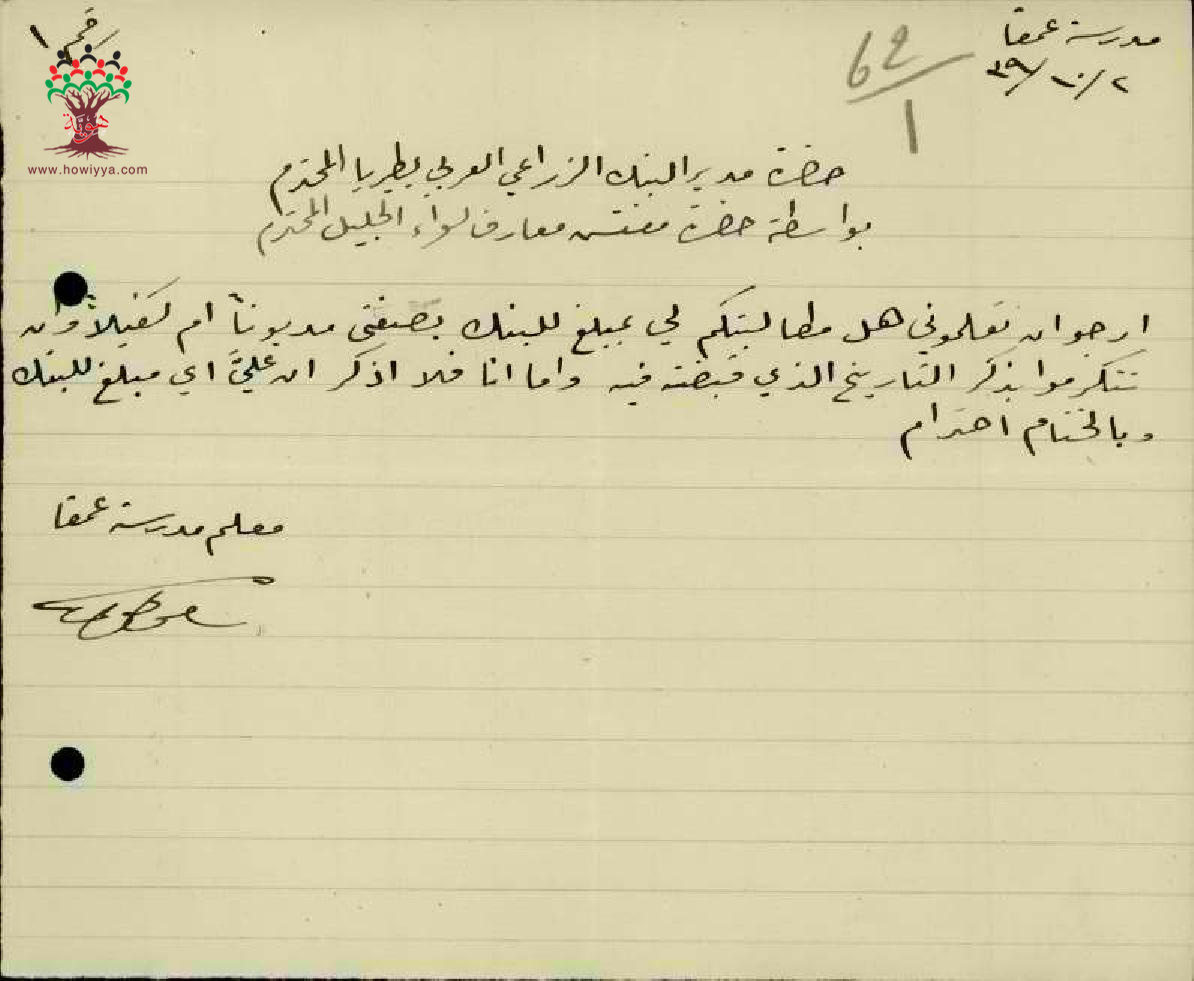 مدرسة عمقا
٢/١٠/٣٩
رقم ١
62/1
هوية
www.howiyya.com
حضرة مدير البنك الزراعي العربي بطبريا المحترم
بواسطة حضرة مفتش معارف لواء الجليل المحترم
ارجو ان تعلموني هل مطالبتكم لي بمبلغ للبنك بصفتي مديوناً ام كفيلاً وان
تتكرموا بذكر التاريخ الذي قبضته فيه واما انا فلا اذكر ان عليَّ اي مبلغ للبنك
وبالختام احترام
معلم مدرسة عمقا